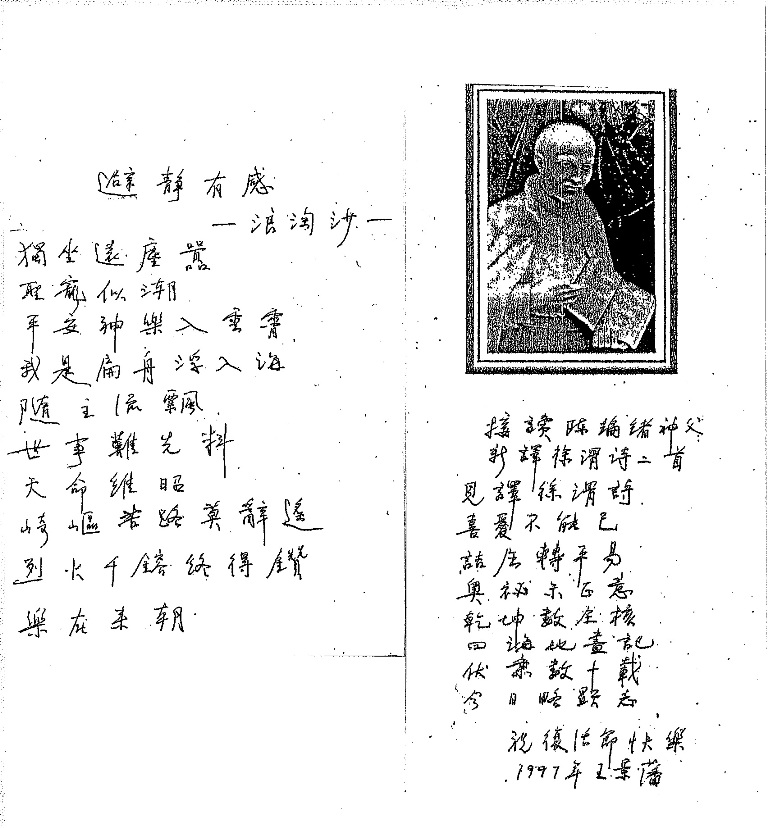 避靜有感
—浪淘沙—
獨坐遠塵囂
聖寵似潮
平安神樂入雲霄
我是扁舟浮入海
隨主流飄
世事難先料
天命維昭
崎嶇苦路莫辭遙
烈火千鎔終得鑽
樂在來朝
接讀陳綸緒神父
新譯徐渭詩二首
見譯徐渭詩
喜愛不能已
詰屈轉平易
奧祕示正意
乾坤數 核
四海 畫記
伏案數十載
今日略顯志
祝復活節快樂
1997年王景藩